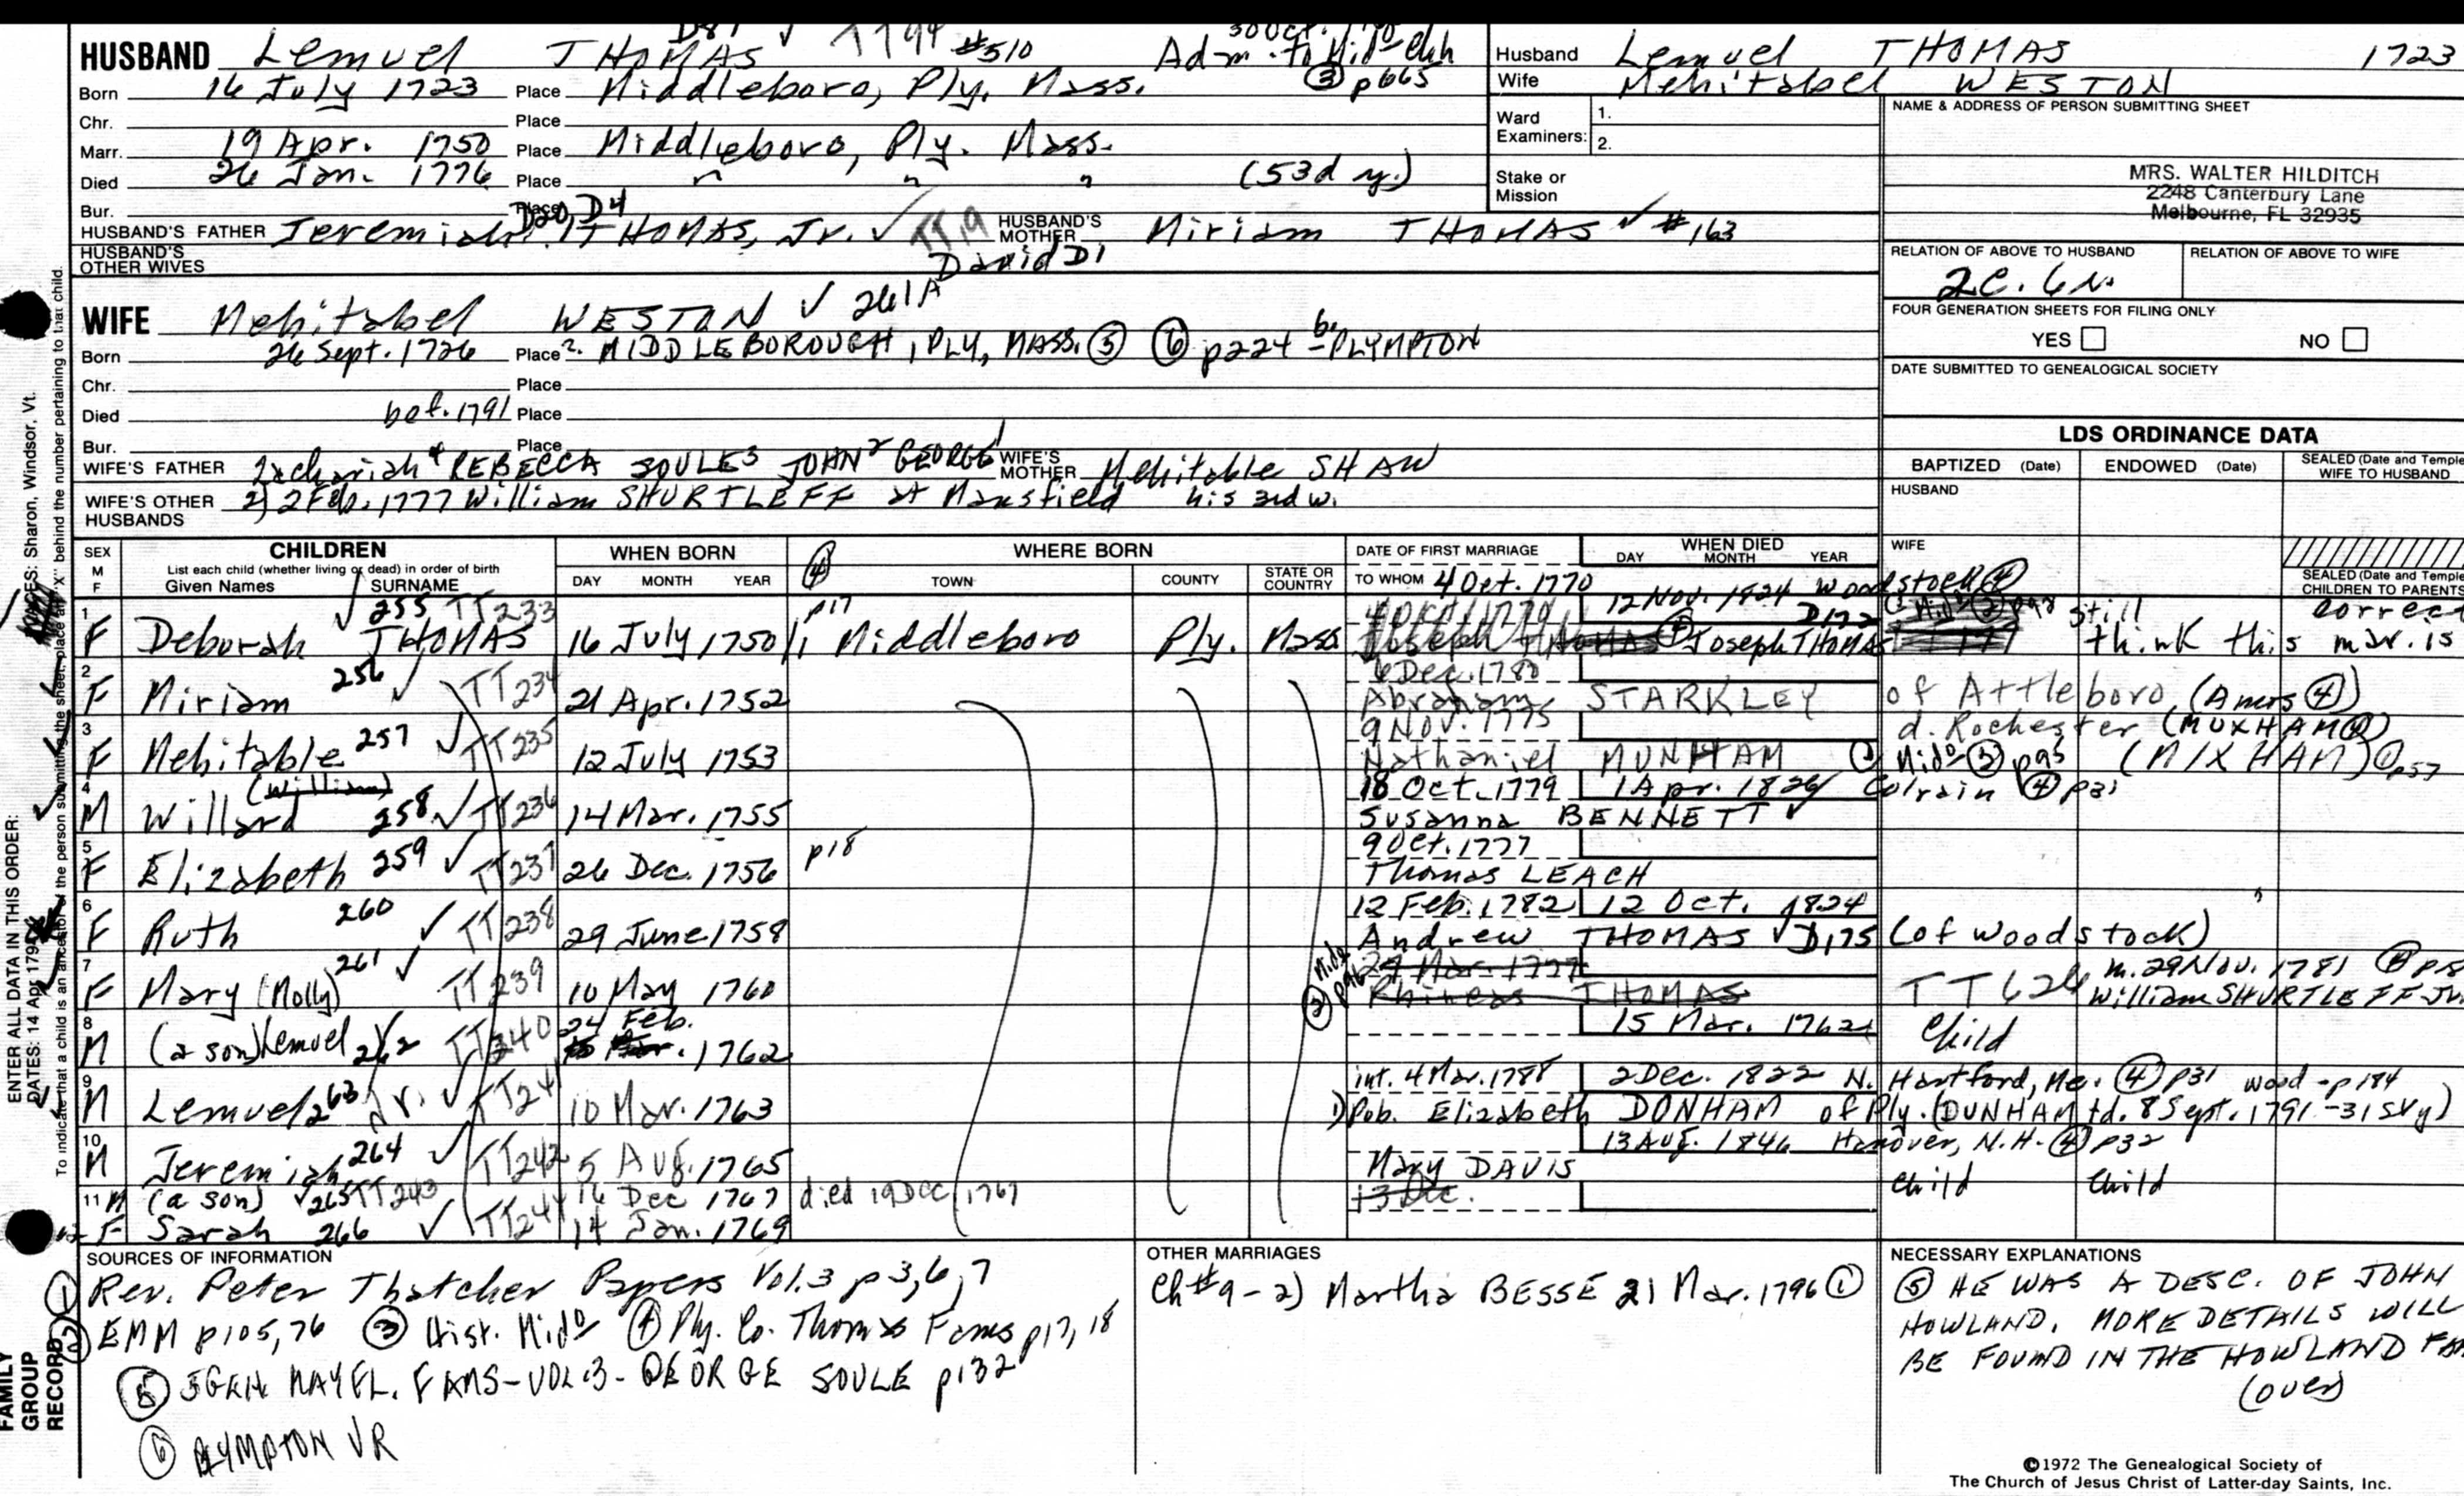 HUSBAND Lemuel THOMAS #510 Adm. to Mido chh
Born 16 July 1723 Place Middleboro, Ply. Mass. ③ p665
Chr. Place
Marr. 19 Apr. 1750 Place Middleboro, Ply. Mass.
Died 26 Jan. 1776 Place " " " (53d y.)
Bur. Place D20, D4
HUSBAND'S FATHER Jeremiah THOMAS, Jr. ✓ TT19 HUSBAND'S MOTHER Miriam THOMAS ✓ #163
HUSBAND'S OTHER WIVES David D1
WIFE Mehitabel WESTON ✓ 261A
Born 26 Sept. 1726 Place ? MIDDLEBOROUGH, PLY, MASS. ⑤ ⑥ p224 b. PLYMPTON
Chr. Place
Died bef. 1791 Place
Bur. Place
WIFE'S FATHER Zachariah + REBECCA SOULE3 JOHN2 GEORGE1 WIFE'S MOTHER Mehitable SHAW
WIFE'S OTHER HUSBANDS 2) 2 Feb. 1777 William SHURTLEFF at Mansfield his 3rd w.
Husband Lemuel THOMAS 1723
Wife Mehitabel WESTON
Ward Examiners: 1.
2.
Stake or Mission
NAME & ADDRESS OF PERSON SUBMITTING SHEET
MRS. WALTER HILDITCH
2248 Canterbury Lane
Melbourne, FL 32935
RELATION OF ABOVE TO HUSBAND RELATION OF ABOVE TO WIFE
2C. 6 N.
FOUR GENERATION SHEETS FOR FILING ONLY
YES NO
DATE SUBMITTED TO GENEALOGICAL SOCIETY
LDS ORDINANCE DATA
BAPTIZED (Date) ENDOWED (Date) SEALED (Date and Temple) WIFE TO HUSBAND
HUSBAND
WIFE
SEALED (Date and Temple) CHILDREN TO PARENTS
SEX M F CHILDREN List each child (whether living or dead) in order of birth Given Names SURNAME
WHEN BORN DAY MONTH YEAR ④ WHERE BORN TOWN COUNTY STATE OR COUNTRY
DATE OF FIRST MARRIAGE TO WHOM WHEN DIED DAY MONTH YEAR
4 Oct. 1770 12 Nov. 1824 Woodstock ④
1 F Deborah THOMAS ✓ 255 TT233 16 July 1750/1 p17 Middleboro Ply. Mass Joseph THOMAS D172 still think this mar. is correct
6 Dec. 1780
2 F Miriam 256 ✓ TT234 21 Apr. 1752 Abraham STARKLEY of Attleboro (Amers ④)
9 Nov. 1775 d. Rochester (MUXHAM ④)
3 F Mehitable 257 ✓ TT235 12 July 1753 Nathaniel MUNHAM ① Mido ③ p95 (MIXHAM) p57
(William) 18 Oct. 1779 1 Apr. 1826 Colrain ④ p31
4 M Willard 258 ✓ TT236 14 Mar. 1755 Susanna BENNETT ✓
9 Oct. 1777
5 F Elizabeth 259 ✓ TT237 26 Dec. 1756 p18 Thomas LEACH
12 Feb. 1782 12 Oct. 1824
6 F Ruth 260 ✓ TT238 29 June 1758 Andrew THOMAS ✓ D175 (of Woodstock)
29 Mar. 1777 m. 29 Nov. 1781
7 F Mary (Molly) 261 ✓ TT239 10 May 1760 ③ Mido p96 Phineas THOMAS TT624 William SHURTLEFF Jr.
24 Feb. 15 Mar. 1762
8 M (a son) Lemuel 262 TT240 1762 Child
int. 4 Mar. 1788 2 Dec. 1822 N. Hartford, Me. ④ p31 wood - p184
9 M Lemuel 263 Jr. ✓ TT241 10 Mar. 1763 1) Pob. Elizabeth DONHAM of Ply. (DUNHAM) d. 8 Sept. 1791 - 31st y)
13 Aug. 1846 Hanover, N.H. ④ p32
10 M Jeremiah 264 ✓ TT242 5 Aug. 1765 Mary DAVIS
11 M (a son) ✓ 265 TT243 16 Dec 1767 died 19 Dec 1767 13 Dec. Child Child
12 F Sarah 266 ✓ TT244 14 Jan. 1769
SOURCES OF INFORMATION
① Rev. Peter Thatcher Papers Vol. 3 p3, 6, 7
② EMM p105, 76 ③ Hist. Mido ④ Ply. Co. Thomas Fams p17, 18
⑤ 5GEN. MAYFL. FAMS - VOL. 3 - GEORGE SOULE p132
⑥ PLYMPTON VR
OTHER MARRIAGES
Ch #9 - 2) Martha BESSE 21 Mar. 1796 ①
NECESSARY EXPLANATIONS
⑤ HE WAS A DESC. OF JOHN
HOWLAND. MORE DETAILS WILL
BE FOUND IN THE HOWLAND
(over)
©1972 The Genealogical Society of
The Church of Jesus Christ of Latter-day Saints, Inc.
ENTER ALL DATA IN THIS ORDER:
PLACES: Sharon, Windsor, Vt.
DATES: 14 Apr 1795
To indicate that a child is an ancestor of the person submitting the sheet, place an "X" behind the number pertaining to that child.
FAMILY
GROUP
RECORD